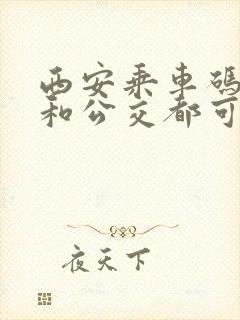 西安乘车码
和公交都可
夜天下